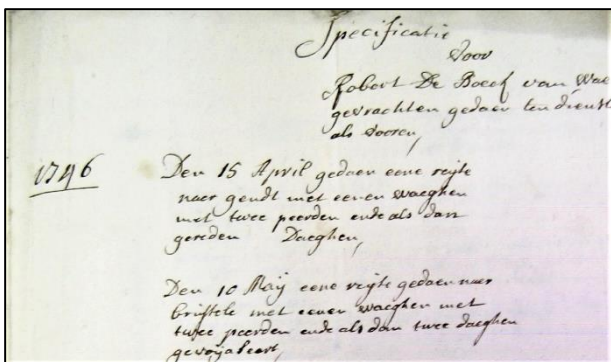 Specificatie
Voor
Robert De Boeck van Wae
gevrachten gedaen ten dienst
als vooren,
1796
Den 15 April gedaen eene reyse
naer gendt met eenen waeghen
met twee peerden ende als dan
gereden Daeghen,
Den 10 Maij eene reyse gedaen naer
brussele met eenen waeghen met
twee peerden ende als dan twee daeghen
gevoyaseert,